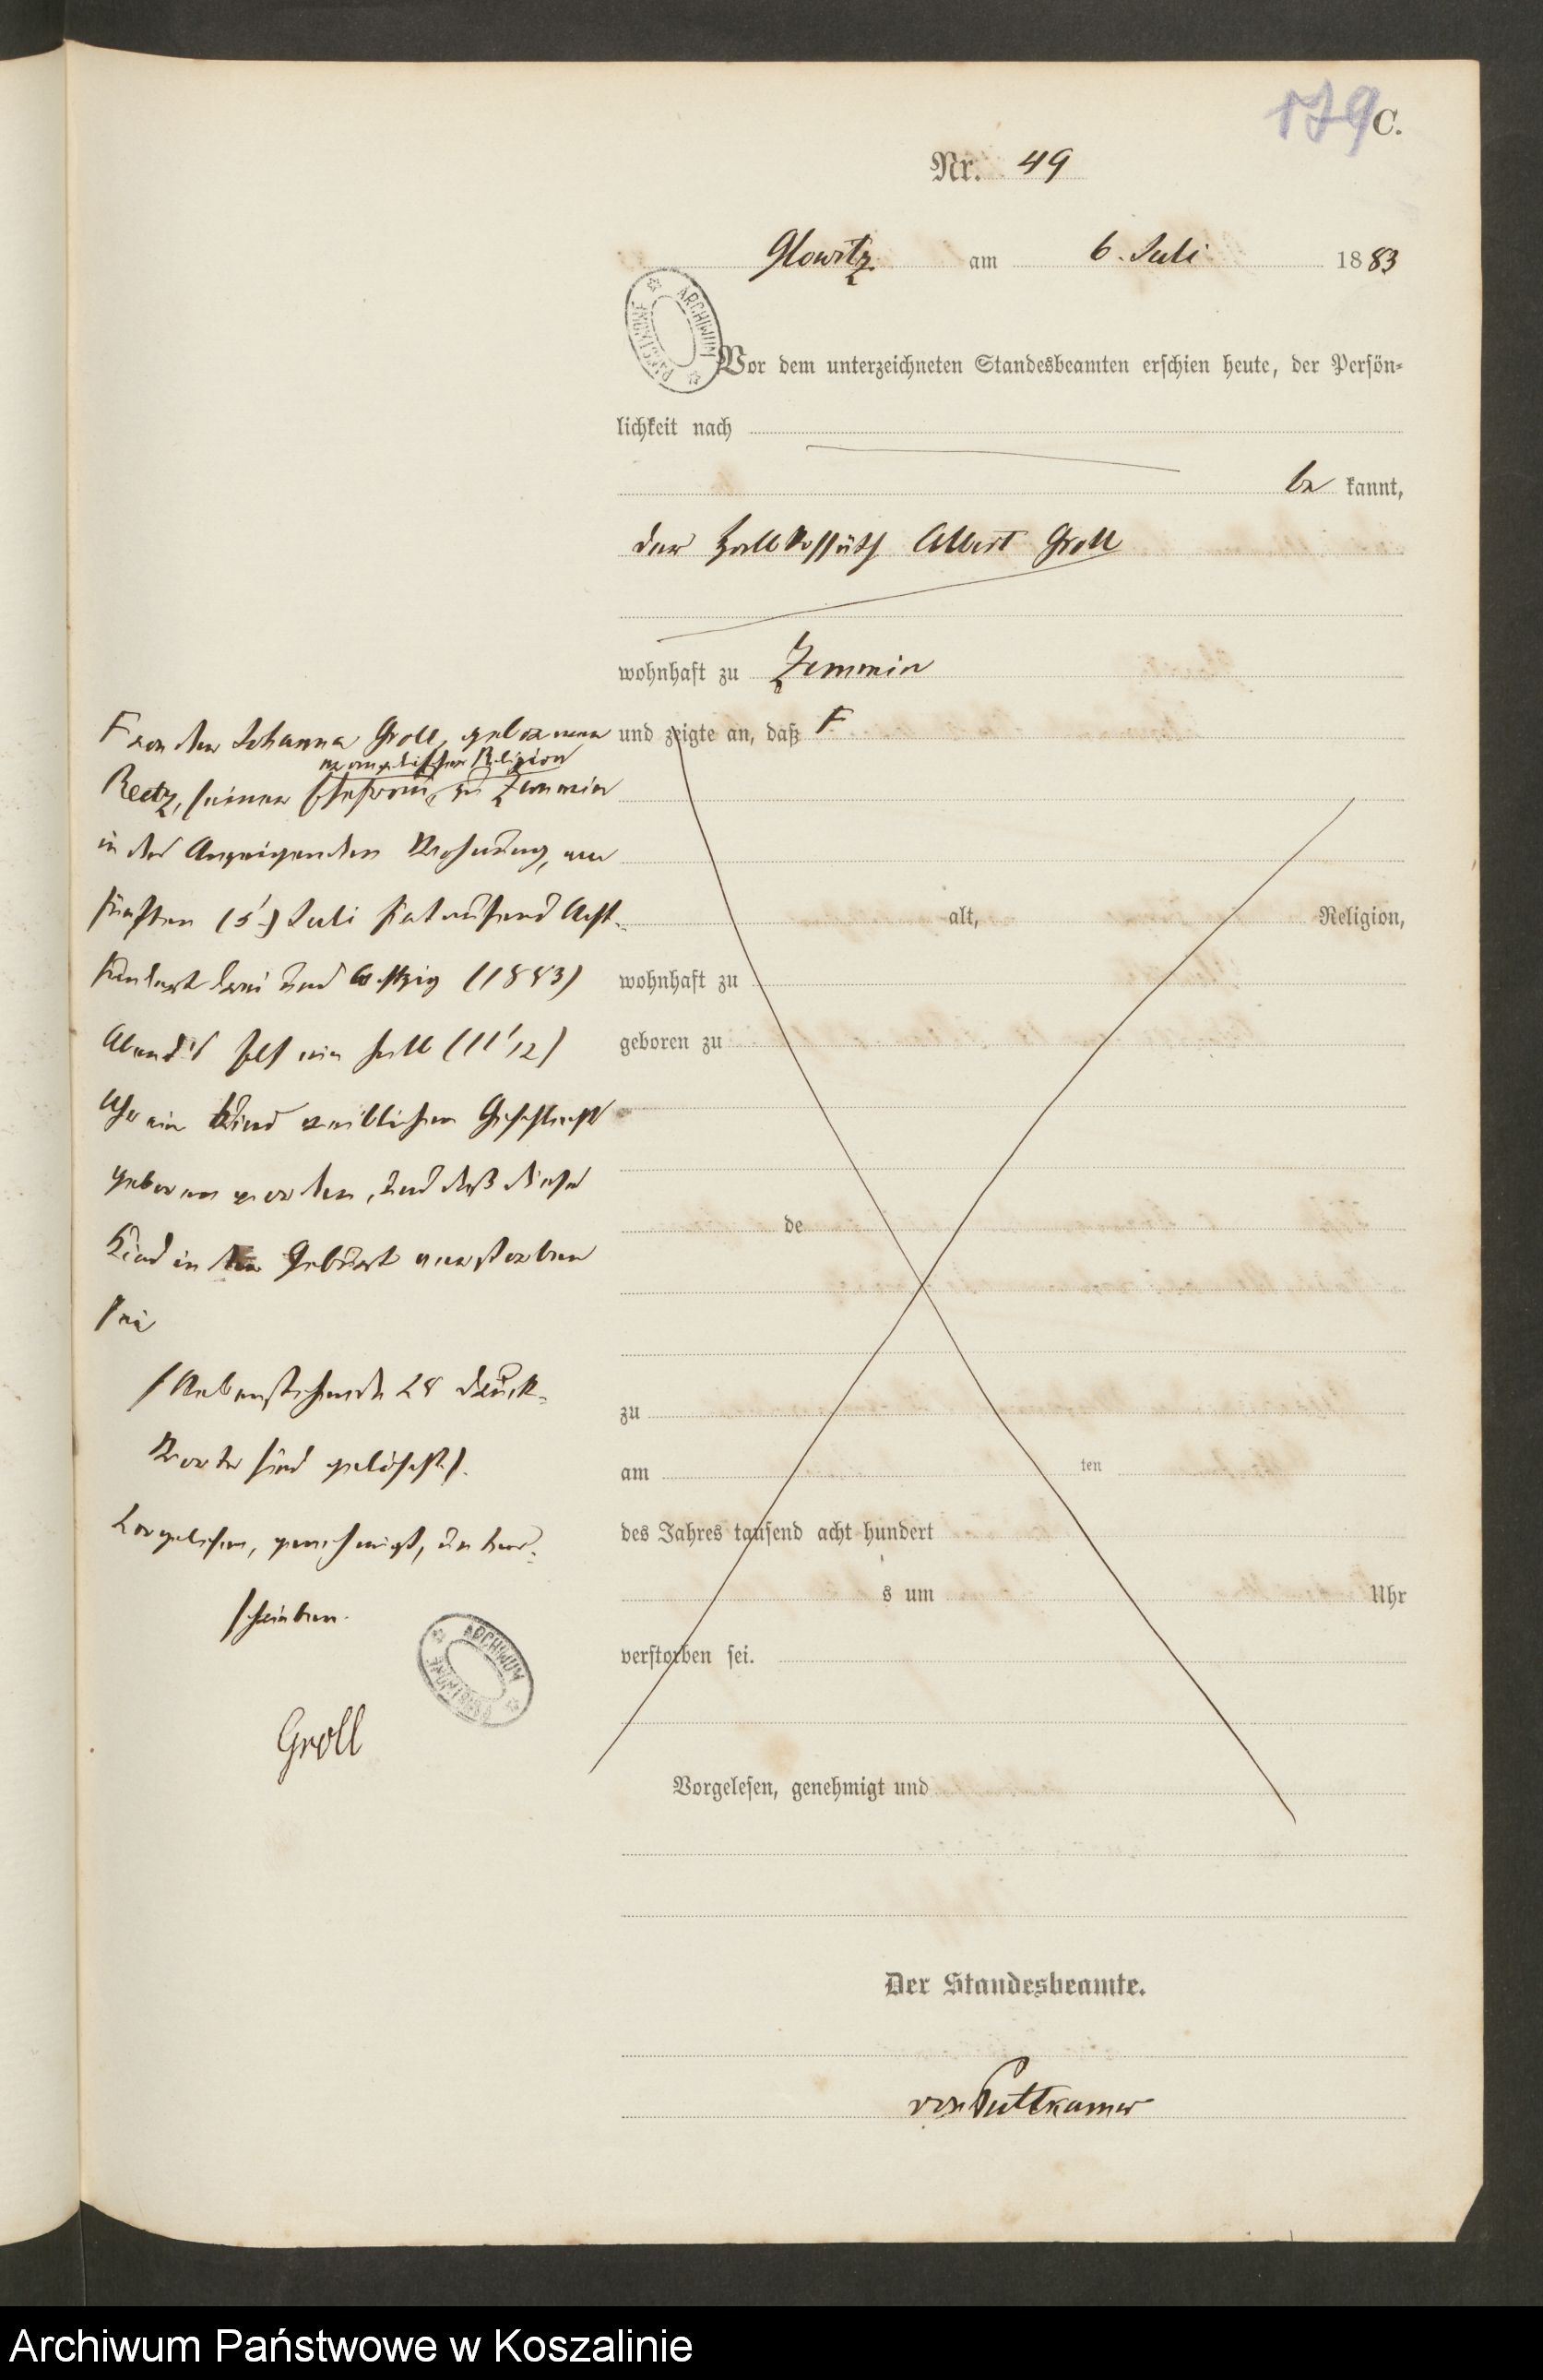 179
C.
Nr. 49
Glowitz am 6. Juli 1883
ARCHIWUM
Vor dem unterzeichneten Standesbeamten erschien heute, der Persön-
lichkeit nach
be kannt,
der Halbkossäth Albert Groll
wohnhaft zu Zemmin
und zeigte an, daß F
alt, Religion,
wohnhaft zu
geboren zu
de
zu
am ten
des Jahres tausend acht hundert
s um Uhr
verstorben sei.
Vorgelesen, genehmigt und
F von der Johanna Groll, geborenen
evangelischer Religion
Reetz, seiner Ehefrau, zu Zemmin
in des Anzeigenden Wohnung, am
fünften (5.) Juli Eintausend Acht-
hundert drei und Achtzig (1883)
Abends elf ein halb (11 1/2)
Uhr ein Kind weiblichen Geschlechts
geboren worden, und daß dieses
Kind in der Geburt verstorben
sei
/Nebenstehende 28 Druck-
Worte sind gelöscht/.
Vorgelesen, genehmigt, unter-
schrieben.
ARCHIWUM
Groll
Der Standesbeamte.
von Puttkamer
Archiwum Państwowe w Koszalinie